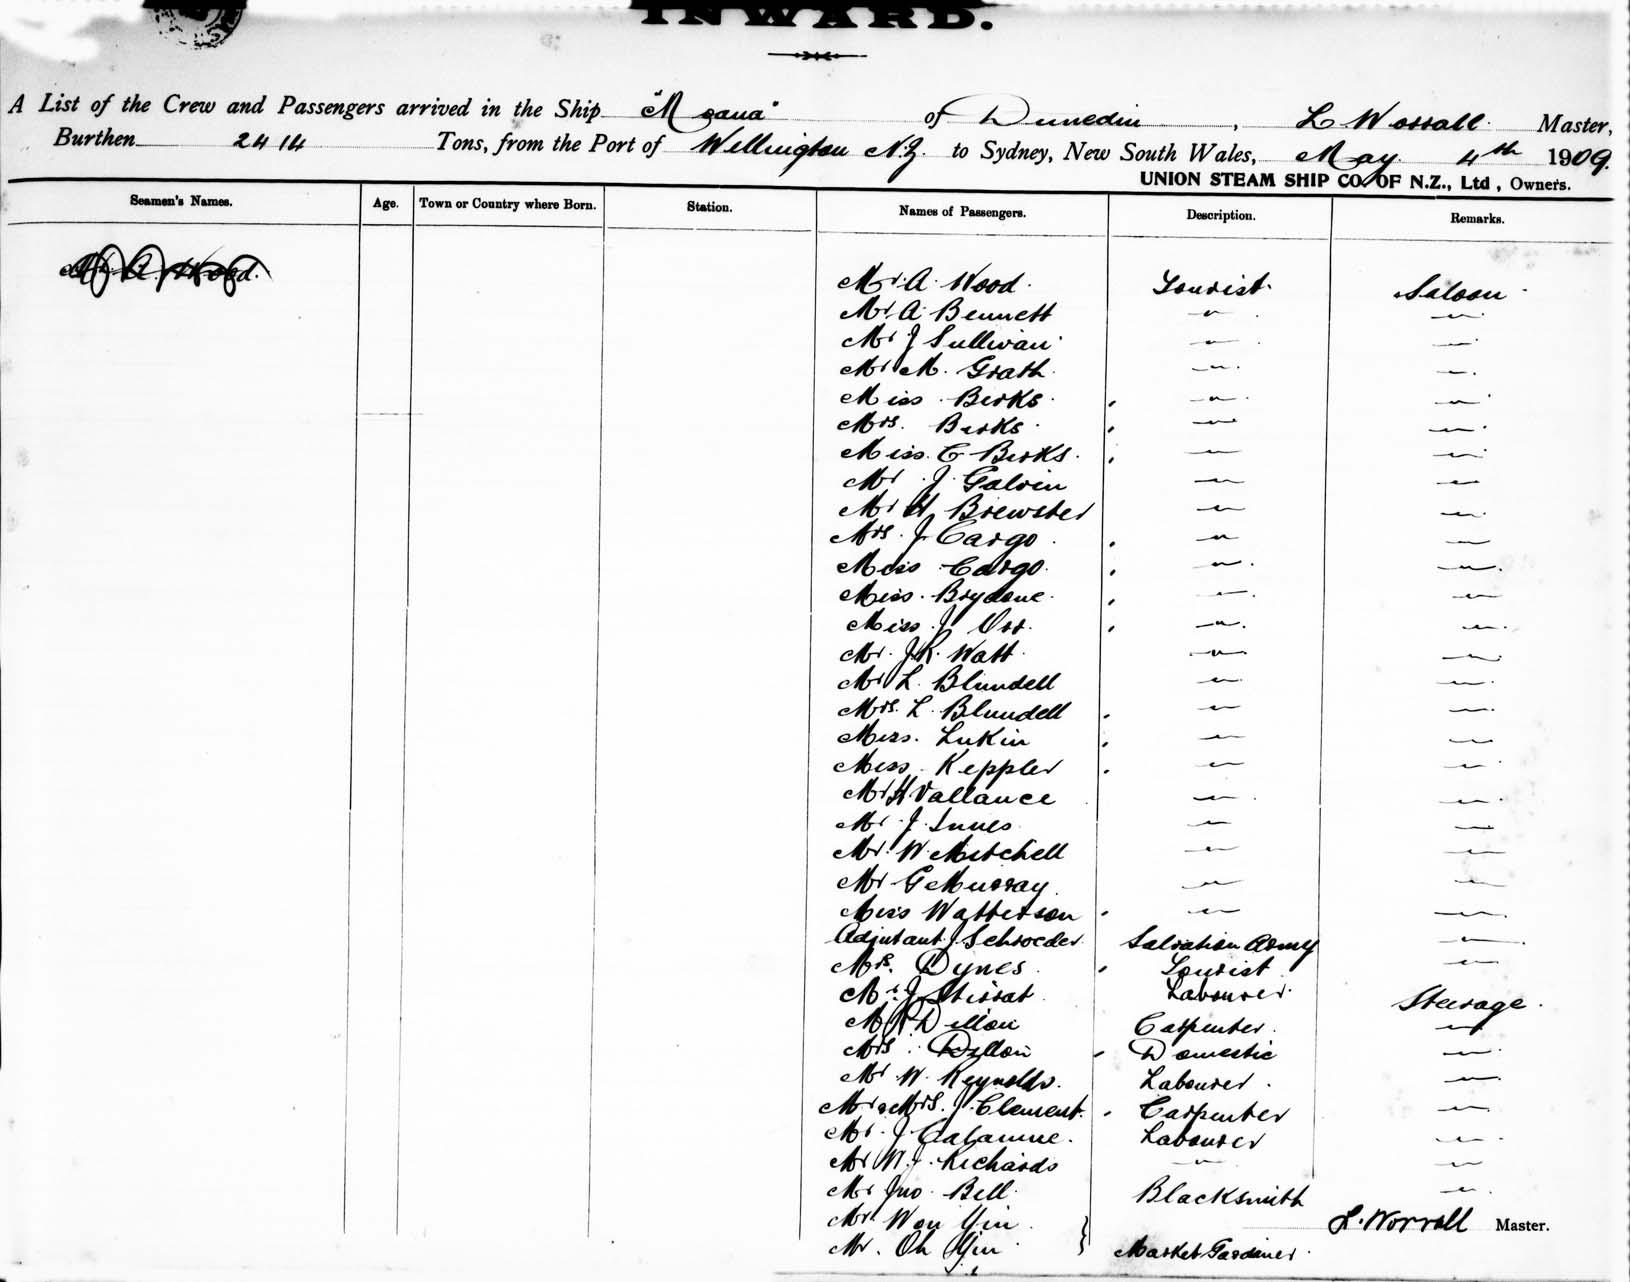 INWARD.
A List of the Crew and Passengers arrived in the Ship "Moana" of Dunedin, L Worrall Master,
Burthen 2414 Tons, from the Port of Wellington N.Z. to Sydney, New South Wales, May 4th 1909.
UNION STEAM SHIP CO. OF N.Z., Ltd, Owners.
Seamen's Names. Age. Town or Country where Born. Station. Names of Passengers. Description. Remarks.
Mr A. Wood.
Mr A. Wood. Tourist. Saloon
Mr A. Bennett " "
Mr J Sullivan " "
Mr M. Grath " "
Miss Birks " "
Mrs. Birks " "
Miss C Birks " "
Mr J Galvin " "
Mr H Brewster " "
Mrs. J Cargo " "
Miss Cargo " "
Miss Brydone " "
Miss J Orr " "
Mr. J.R. Watt " "
Mr L. Blundell " "
Mrs. L. Blundell " "
Miss. Lukin " "
Miss Keppler " "
Mr H Vallance " "
Mr J. Innes " "
Mr. W. Mitchell " "
Mr G Murray " "
Miss Watterson " "
Adjutant J Schroeder Salvation Army "
Mrs. Dynes Tourist "
Mr. J. Labourer Steerage
Mr Dillon Carpenter "
Mrs Dillon Domestic "
Mr W. Reynolds. Labourer "
Mr & Mrs. J. Clement. Carpenter "
Mr. J. Labourer "
Mr W.J. Richards " "
Mr Jno. Bell Blacksmith "
Mr Won Yin }
L. Worrall Master.
Mr. Oh Yin } Market Gardener